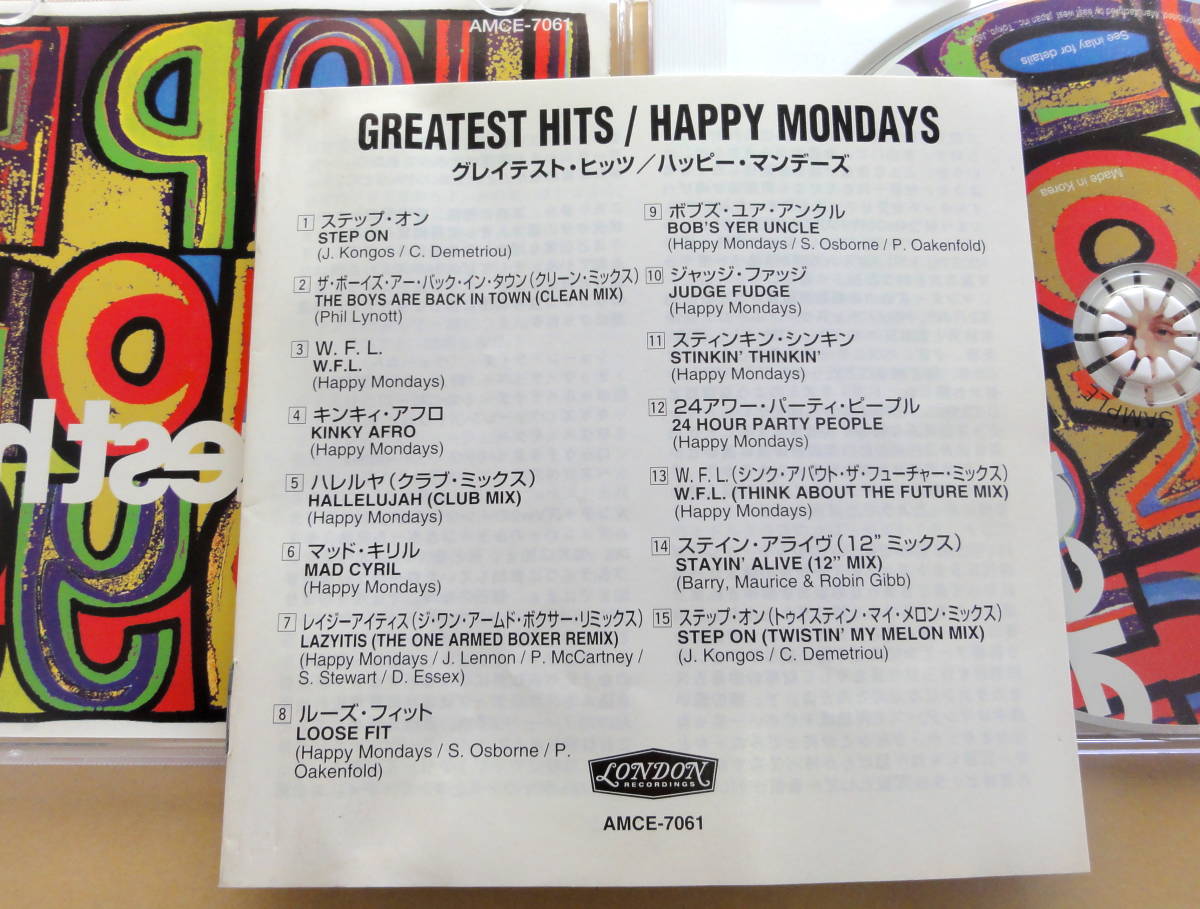 AMCE-7061
See inlay for details
Made in Korea
SAMPLE
est h
GREATEST HITS / HAPPY MONDAYS
グレイテスト・ヒッツ／ハッピー・マンデーズ
1 ステップ・オン
STEP ON
(J. Kongos / C. Demetriou)
2 ザ・ボーイズ・アー・バック・イン・タウン(クリーン・ミックス)
THE BOYS ARE BACK IN TOWN (CLEAN MIX)
(Phil Lynott)
3 W. F. L.
W.F.L.
(Happy Mondays)
4 キンキィ・アフロ
KINKY AFRO
(Happy Mondays)
5 ハレルヤ(クラブ・ミックス)
HALLELUJAH (CLUB MIX)
(Happy Mondays)
6 マッド・キリル
MAD CYRIL
(Happy Mondays)
7 レイジーアイティス(ジ・ワン・アームド・ボクサー・リミックス)
LAZYITIS (THE ONE ARMED BOXER REMIX)
(Happy Mondays / J. Lennon / P. McCartney /
S. Stewart / D. Essex)
8 ルーズ・フィット
LOOSE FIT
(Happy Mondays / S. Osborne / P.
Oakenfold)
9 ボブズ・ユア・アンクル
BOB'S YER UNCLE
(Happy Mondays / S. Osborne / P. Oakenfold)
10 ジャッジ・ファッジ
JUDGE FUDGE
(Happy Mondays)
11 スティンキン・シンキン
STINKIN' THINKIN'
(Happy Mondays)
12 24アワー・パーティ・ピープル
24 HOUR PARTY PEOPLE
(Happy Mondays)
13 W. F. L. (シンク・アバウト・ザ・フューチャー・ミックス)
W.F.L. (THINK ABOUT THE FUTURE MIX)
(Happy Mondays)
14 ステイン・アライヴ(12" ミックス)
STAYIN' ALIVE (12" MIX)
(Barry, Maurice & Robin Gibb)
15 ステップ・オン(トゥイスティン・マイ・メロン・ミックス)
STEP ON (TWISTIN' MY MELON MIX)
(J. Kongos / C. Demetriou)
LONDON
RECORDINGS
AMCE-7061